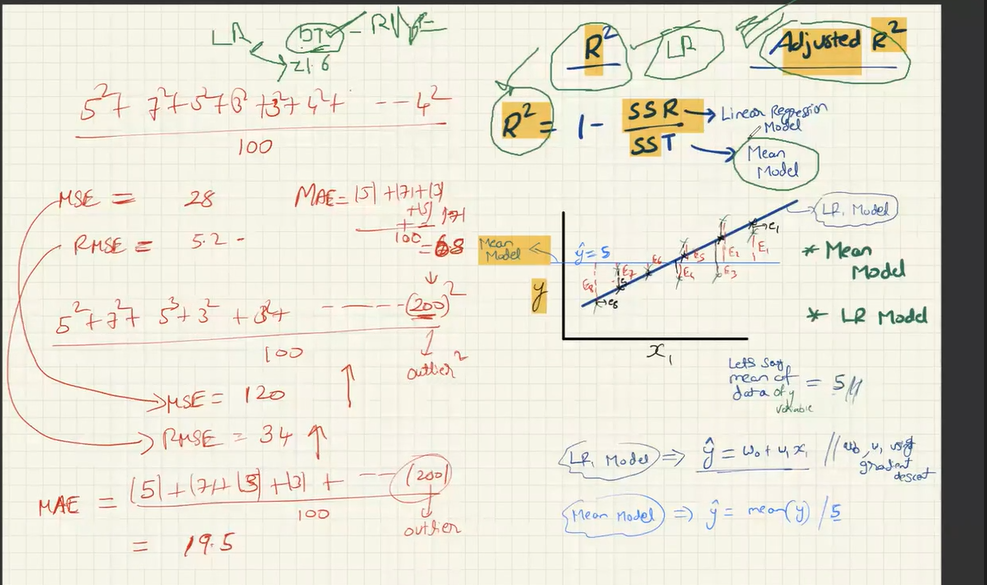 LR
DT
21.6
5² + 7² + 5² + 3² + 3² + 4² + --- 4²
100
MSE = 28
RMSE = 5.2 -
MAE = |5| + |7| + |3|
+ |5|
100
5² + 7² + 5³ + 3² + 3² + ------- (200)²
100
outlier²
MSE = 120
RMSE = 34
MAE = |5| + |7| + |3| + |3| + --- (200)
100
outlier
= 19.5
R²
LR
Adjusted R²
R² = 1 - SSR
SST
Linear Regression
Model
Mean
Model
LR Model
Mean
Model
ŷ = 5
E₁
E₂
E₃
E₄
E₅
E₆
E₇
E₈
e₁
e₈
y
x₁
* Mean
Model
* LR Model
Lets say
mean of
data of y
variable
= 5//
LR Model ⇒ ŷ = w₀ + w₁ x₁ // w₀, w₁ using
gradient
descent
Mean Model ⇒ ŷ = mean(y) / 5